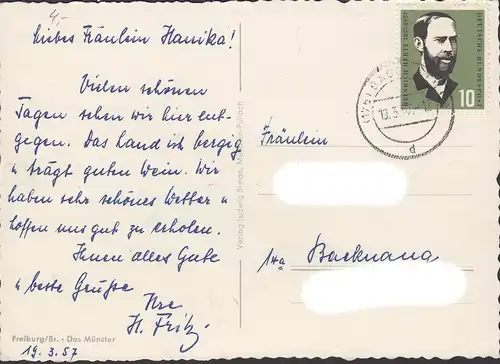 4,-
Liebes Fräulein Hanika!
Vielen schönen
Tagen sehen wir hier ent-
gegen. Das Land ist bergig
u trägt guten Wein. Wir
haben sehr schönes Wetter u
hoffen uns gut zu erholen.
Ihnen alles Gute
u beste Grüße
Ihre
H. Fritz.
Freiburg/Br. - Das Münster
19.3.57
Verlag Ludwig Simon, München-Pullach
DEUTSCHE BUNDESPOST
10
d
Fräulein
14a Backnang